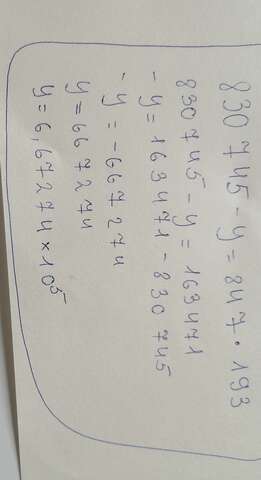 830 745 - y = 847 · 193
830 745 - y = 163471
-y = 163471 - 830 745
-y = -667274
y = 667274
y = 6,67274 × 10⁵